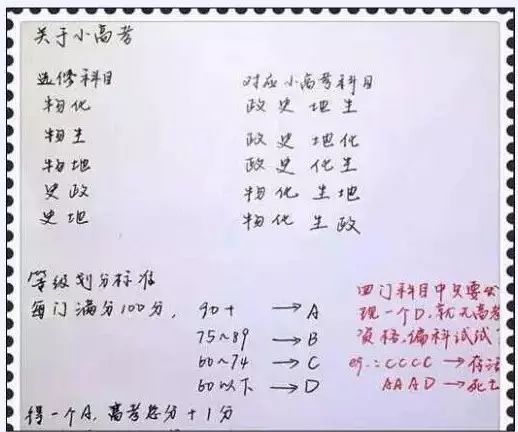 关于小高考
选修科目 对应小高考科目
物化 政史地生
物生 政史地化
物地 政史化生
史政 物化生地
史地 物化生政
等级划分标准
每门满分100分, 90+ → A
75~89 → B
60~74 → C
60以下 → D
得一个A, 高考总分+1分
四门科目中只要出
现一个D, 就无高考
资格, 偏科试试
eg.: CCCC → 存活
AAAD → 死亡